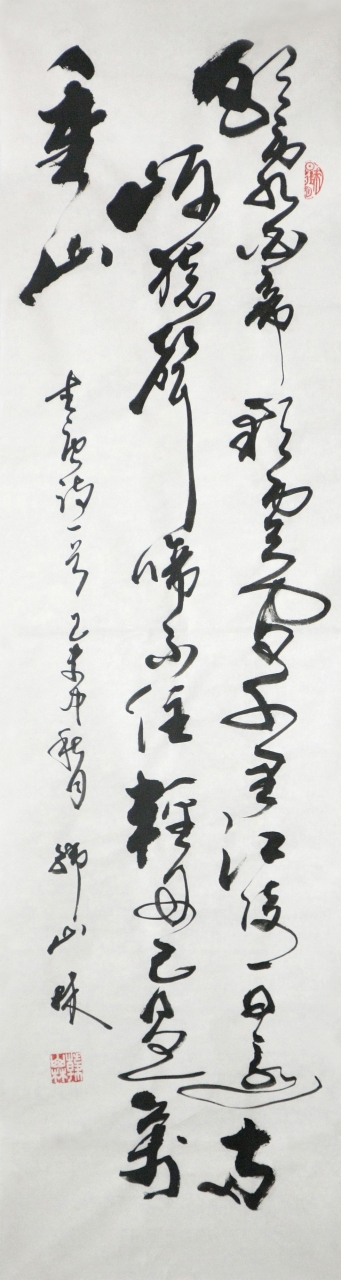 朝辭白帝彩雲間千里江陵一日還両
岸猿聲啼不住輕舟已過萬
重山
唐詩一首 乙未中秋月 山